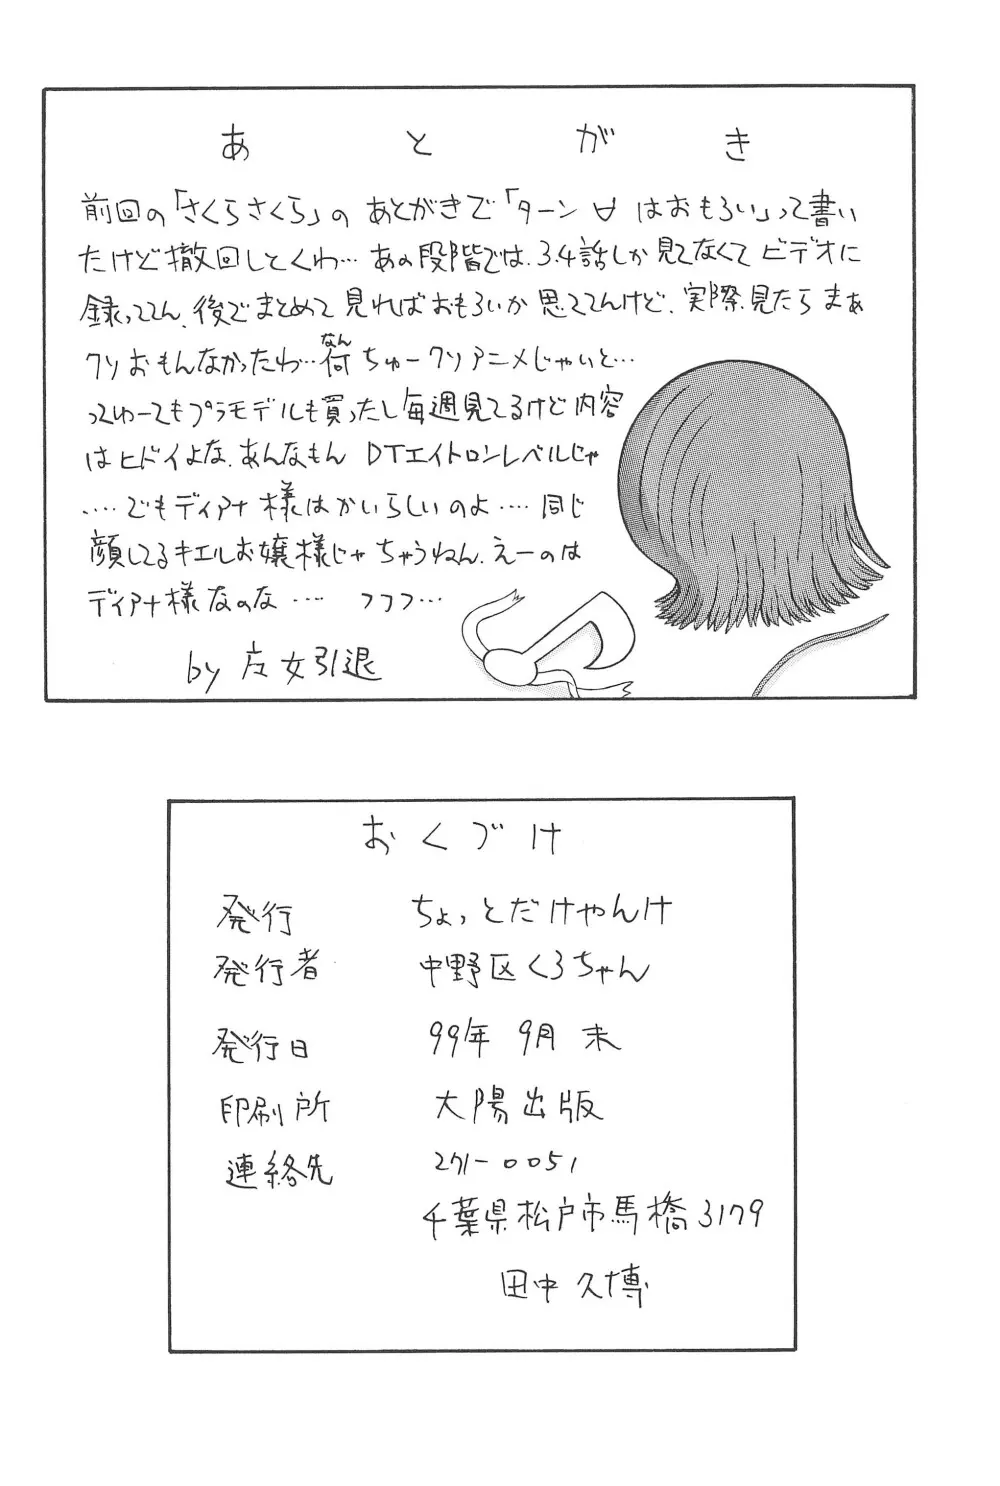 あとがき
前回の「さくらさくら」のあとがきで「ターン∀はおもろい」って書い
たけど撤回しとくわ…あの段階では、3.4話しか見てなくてビデオに
録っててん、後でまとめて見ればおもろいか思っててんけど、実際見たらまぁ
クソおもんなかったわ…何ちゅークソアニメじゃいと…
なん
ってゆーてもプラモデルも買ったし毎週見てるけど内容
はヒドイよな、あんなもん DTエイトロンレベルじゃ
‥‥でもディアナ様はかいらしいのよ‥‥同じ
顔してるキエルお嬢様じゃちゃうねん、えーのは
ディアナ様なのな‥‥ フフフ…
by 女引退
おくづけ
発行 ちょっとだけやんけ
発行者 中野区くろちゃん
発行日 99年9月末
印刷所 大陽出版
連絡先 271-0051
千葉県松戸市馬橋3179
田中久博